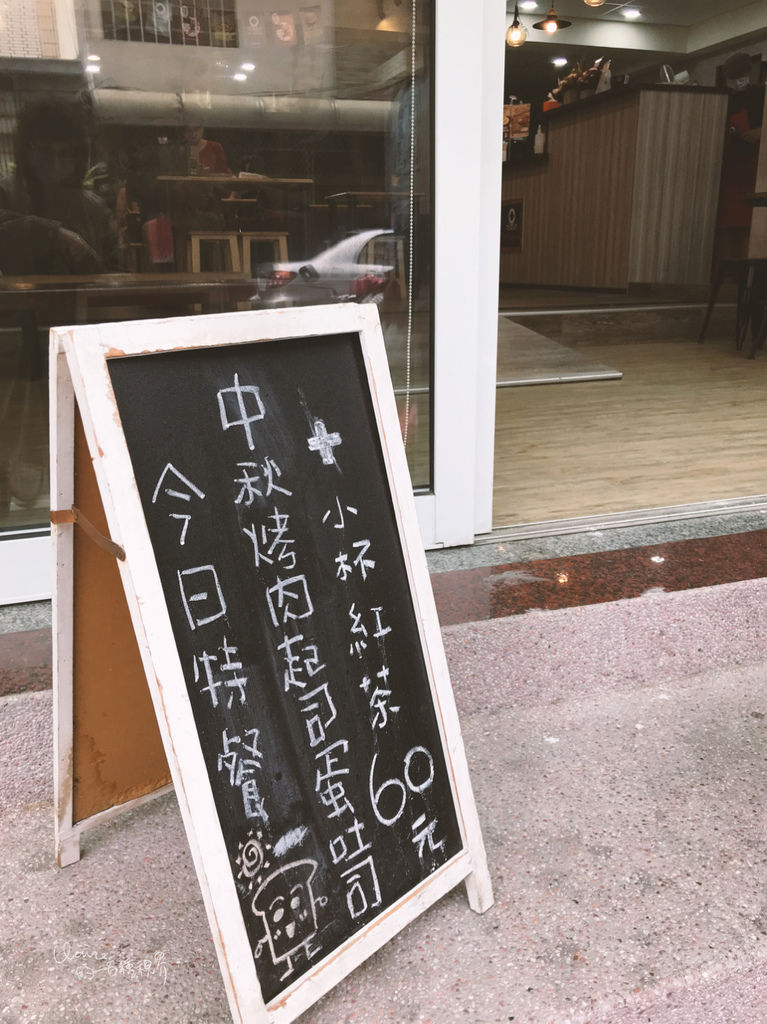 今日特餐
中秋烤肉起司蛋吐司
+小杯紅茶60元